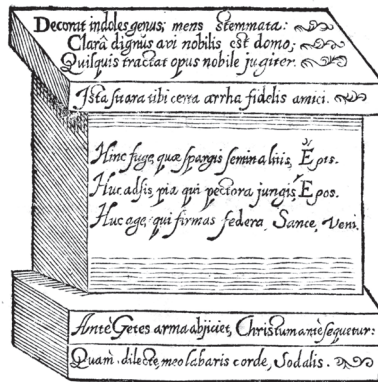 Decorat indoles genus; mens stemmata:
Clarâ dignus avi nobilis est domo;
Quisquis tractat opus nobile jugiter.
Ista futura tibi certa arrha fidelis amici.
Hinc fuge, quæ spargis semina litis, Ερις.
Huc adsis, pia qui pectora jungis, Ερος.
Huc age, qui firmas federa, Sance, veni.
Antè Getes arma abjiciet, Christum antè sequetur:
Quàm dilecte meo labaris corde, Sodalis.